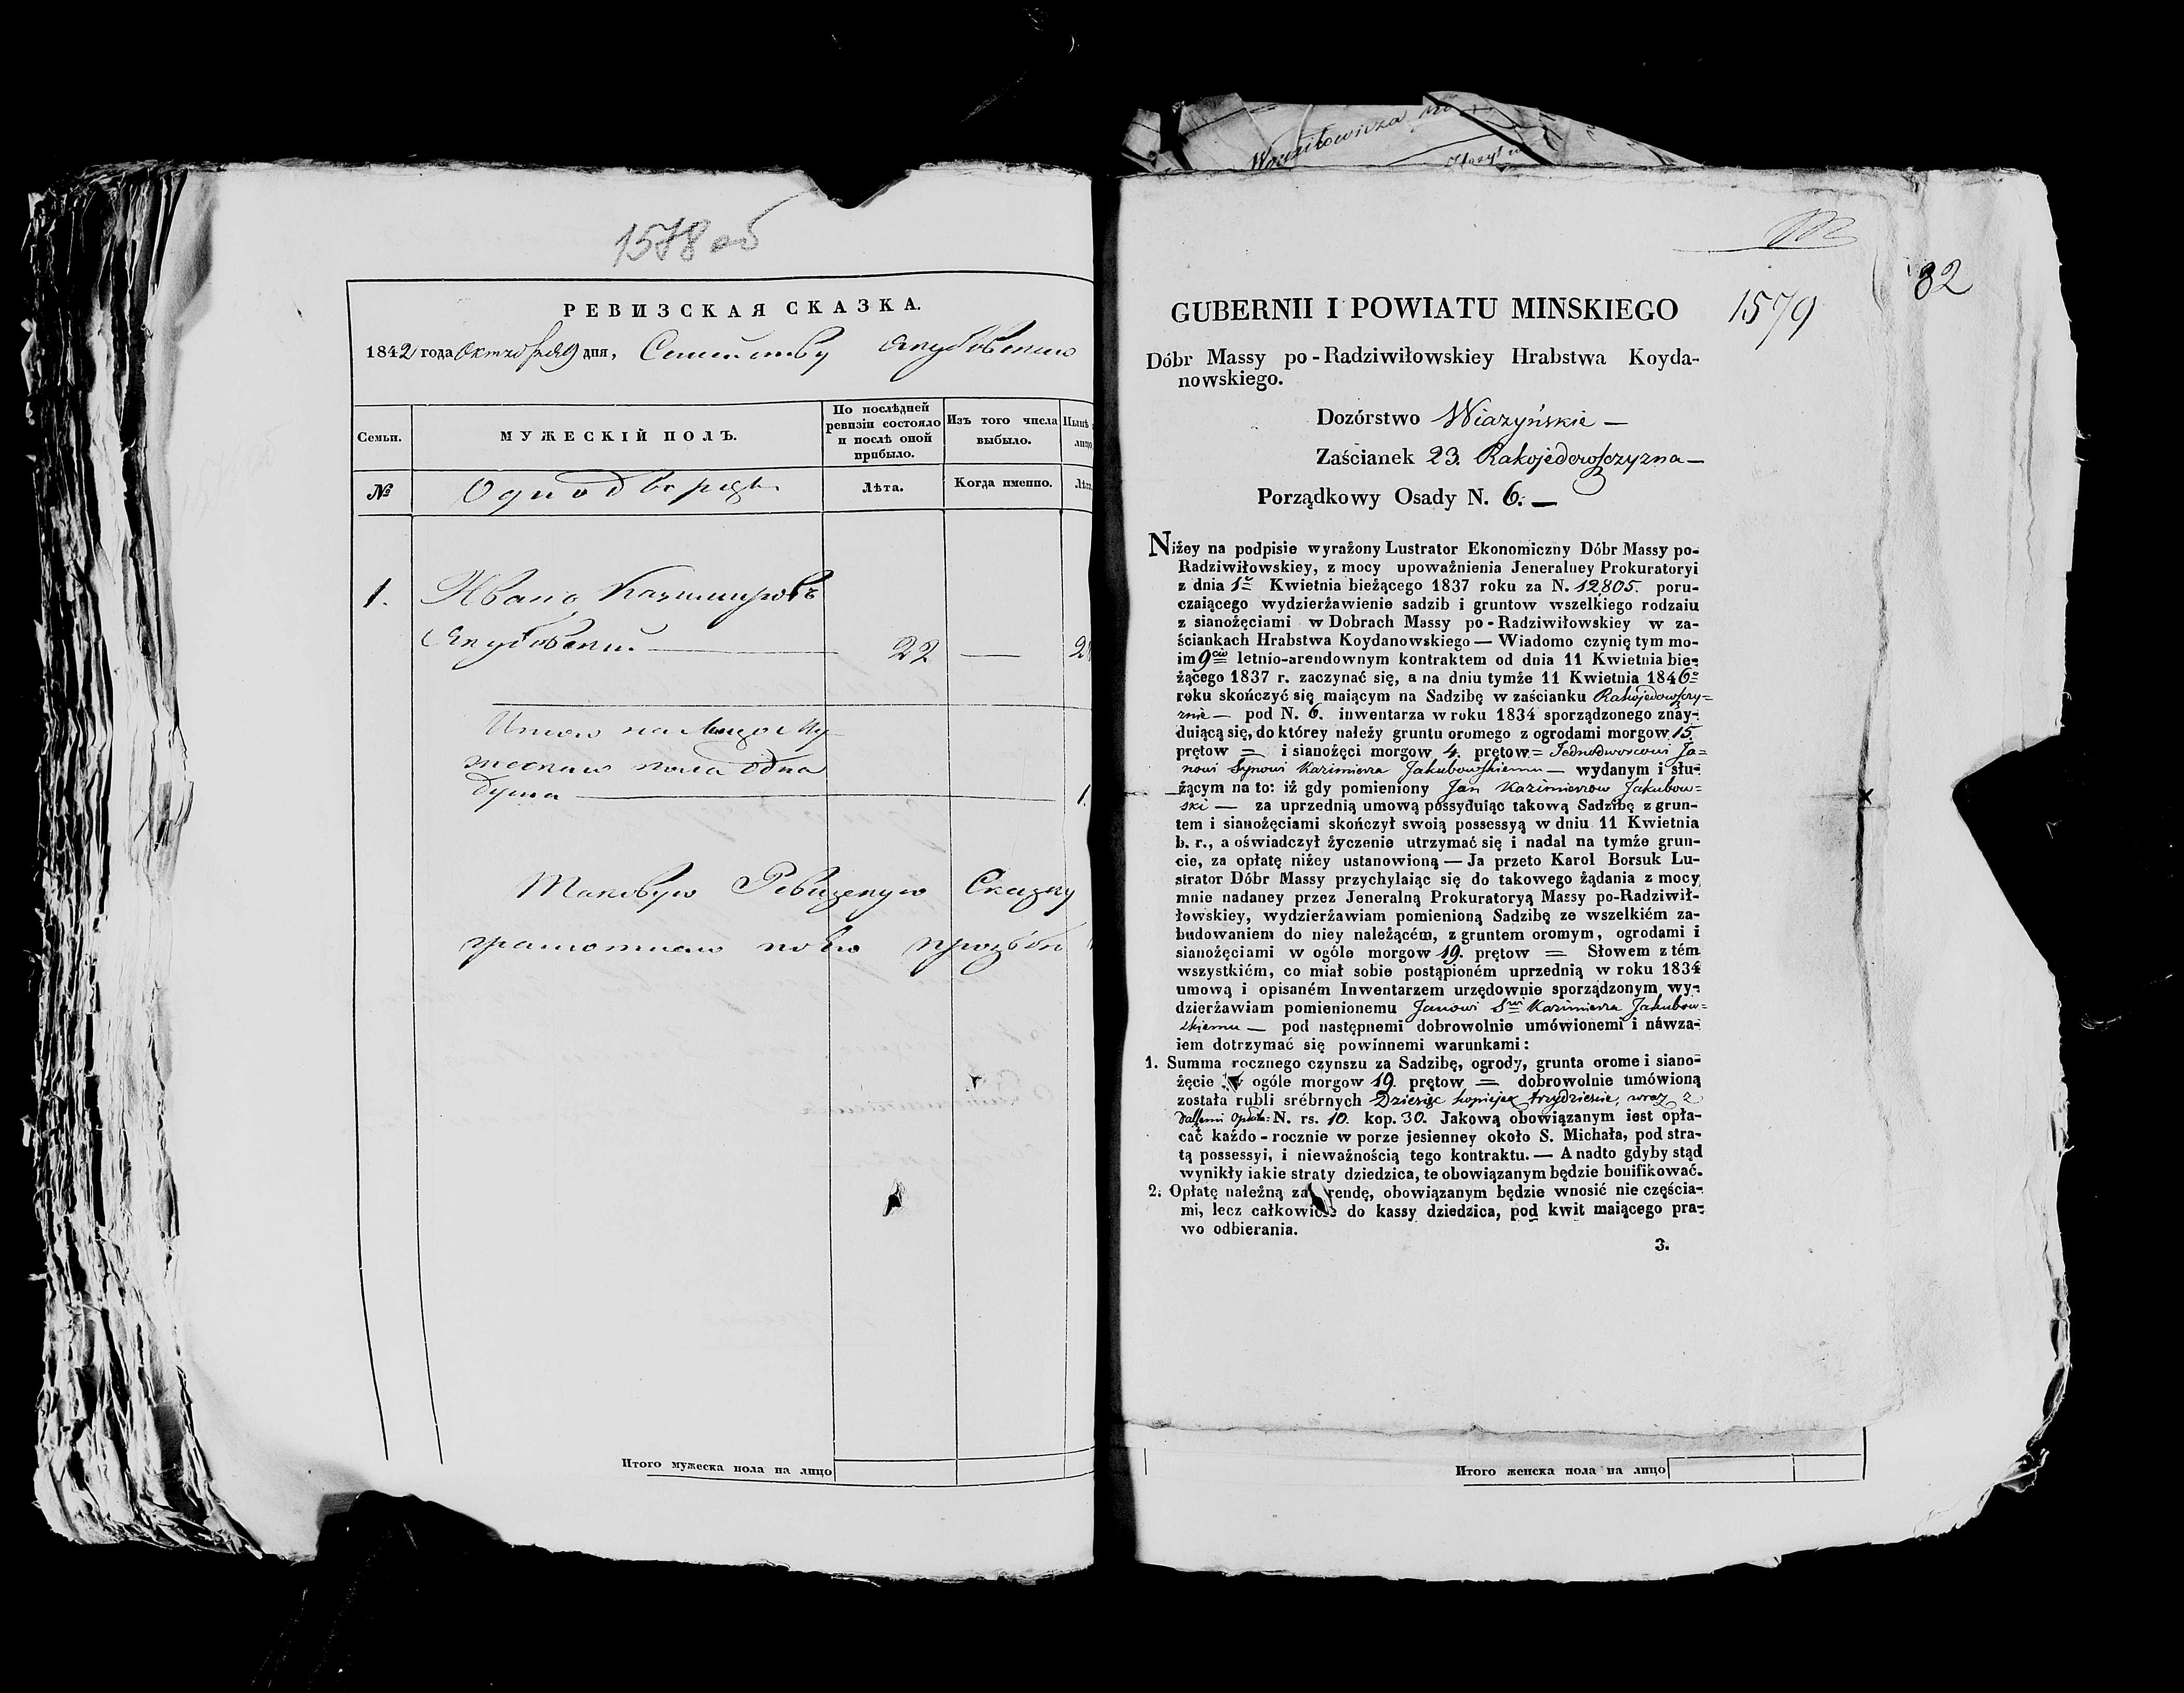 1578 об
РЕВИЗСКАЯ СКАЗКА.
1842 года Октября 9 дня, Семейству Якубовскаго
Семьи.
МУЖЕСКІЙ ПОЛЪ.
По послѣдней
ревизіи состояло
и послѣ оной
прибыло.
Изъ того числа
выбыло.
Нынѣ
лицо
№
Однодворцы
Лѣта.
Когда именно.
Лѣта
1. Иванъ Казимировъ
Якубовскій 22 —
Итого на лицо Му-
жескаго пола одна
душа 1.
Таковую Ревизскую Сказку
Итого мужеска пола на лицо
32
1579
GUBERNII I POWIATU MINSKIEGO
Dóbr Massy po-Radziwiłowskiey Hrabstwa Koyda-
nowskiego.
Dozórstwo Wiazyńskie —
Zaścianek 23. Rakojedowszczyzna —
Porządkowy Osady N. 6. —
Niżey na podpisie wyrażony Lustrator Ekonomiczny Dóbr Massy po-
Radziwiłowskiey, z mocy upoważnienia Jeneralney Prokuratoryi
z dnia 1º Kwietnia bieżącego 1837 roku za N. 12805. poru-
czaiącego wydzierżawienie sadzib i gruntow wszelkiego rodzaiu
z sianożęciami w Dobrach Massy po-Radziwiłowskiey w za-
ściankach Hrabstwa Koydanowskiego — Wiadomo czynię tym mo-
im 9cio letnio-arendownym kontraktem od dnia 11 Kwietnia bie-
żącego 1837 r. zaczynać się, a na dniu tymże 11 Kwietnia 1846º
roku skończyć się maiącym na Sadzibę w zaścianku Rakojedowszczy=
znie — pod N. 6. inwentarza w roku 1834 sporządzonego znay-
duiącą się, do którey należy gruntu oromego z ogrodami morgow 15
prętow = i sianożęci morgow 4. prętow = Jednodworcowi Ja=
nowi Synowi Kazimierza Jakubowskiemu — wydanym i słu-
żącym na to: iż gdy pomieniony Jan Kazimierzow Jakubow=
ski — za uprzednią umową possyduiąc takową Sadzibę z grun-
tem i sianożęciami skończył swoią possessyą w dniu 11 Kwietnia
b. r., a oświadczył życzenie utrzymać się i nadal na tymże grun-
cie, za opłatę niżey ustanowioną — Ja przeto Karol Borsuk Lu-
strator Dóbr Massy przychylaiąc się do takowego żądania z mocy
mnie nadaney przez Jeneralną Prokuratoryą Massy po-Radziwił-
łowskiey, wydzierżawiam pomienioną Sadzibę ze wszelkiém za-
budowaniem do niey należącém, z gruntem oromym, ogrodami i
sianożęciami w ogóle morgow 19. prętow = Słowem z tém
wszystkiém, co miał sobie postąpioném uprzednią w roku 1834
umową i opisaném Inwentarzem urzędownie sporządzonym wy-
dzierżawiam pomienionemu Janowi Swi Kazimierza Jakubow=
skiemu — pod następnemi dobrowolnie umówionemi i náwza-
iem dotrzymać się powinnemi warunkami:
1. Summa rocznego czynszu za Sadzibę, ogrody, grunta orome i siano-
żęcie w ogóle morgow 19. prętow = dobrowolnie umówioną
została rubli srébrnych Dziesięć kopiejek trzydzieście, wraz z
N. rs. 10. kop. 30. Jakową obowiązanym iest opła-
cać każdo-rocznie w porze jesienney około S. Michała, pod stra-
tą possessyi, i nieważnością tego kontraktu. — A nadto gdyby stąd
wynikły iakie straty dziedzica, te obowiązanym będzie bonifikować.
2. Opłatę należną za arendę, obowiązanym będzie wnosić nie częścia-
mi, lecz całkowicie do kassy dziedzica, pod kwit maiącego pra-
wo odbierania.
3.
Итого женска пола на лицо